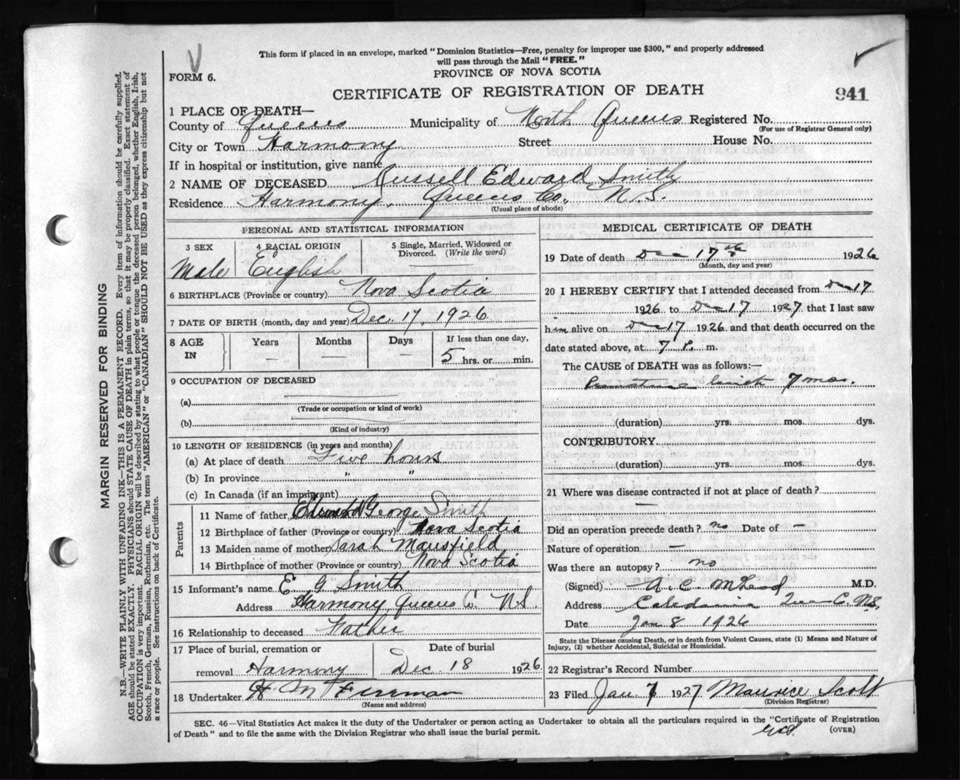 This form if placed in an envelope, marked "Dominion Statistics—Free, penalty for improper use $300," and properly addressed
will pass through the Mail "FREE."
FORM 6.
PROVINCE OF NOVA SCOTIA
CERTIFICATE OF REGISTRATION OF DEATH
941
1 PLACE OF DEATH—
County of Queens Municipality of North Queens Registered No.
(For use of Registrar General only)
City or Town Harmony Street House No.
If in hospital or institution, give name
2 NAME OF DECEASED Russell Edward Smith
Residence Harmony, Queens Co. N.S.
(Usual place of abode)
PERSONAL AND STATISTICAL INFORMATION
3 SEX 4 RACIAL ORIGIN 5 Single, Married, Widowed or
Divorced. (Write the word)
Male English
6 BIRTHPLACE (Province or country) Nova Scotia
7 DATE OF BIRTH (month, day and year) Dec. 17, 1926
8 AGE IN Years Months Days If less than one day,
— — — 5 hrs. or min.
9 OCCUPATION OF DECEASED
(a)
(Trade or occupation or kind of work)
(b)
(Kind of industry)
10 LENGTH OF RESIDENCE (in years and months)
(a) At place of death Five hours
(b) In province " "
(c) In Canada (if an immigrant)
Parents
11 Name of father George Smith
12 Birthplace of father (Province or country) Nova Scotia
13 Maiden name of mother Sarah Mansfield
14 Birthplace of mother (Province or country) Nova Scotia
15 Informant's name E G Smith
Address Harmony, Queens Co. N.S.
16 Relationship to deceased Father
17 Place of burial, cremation or Date of burial
removal Harmony Dec. 18 1926
18 Undertaker H M Freeman
(Name and address)
MEDICAL CERTIFICATE OF DEATH
19 Date of death Dec 17th 1926
(Month, day and year)
20 I HEREBY CERTIFY that I attended deceased from Dec 17
1926 to Dec 17 1927 that I last saw
him alive on Dec 17 1926 and that death occurred on the
date stated above, at 7 P. m.
The CAUSE of DEATH was as follows:—
Premature birth 7 mos.
(duration) yrs. mos. dys.
CONTRIBUTORY
(duration) yrs. mos. dys.
21 Where was disease contracted if not at place of death?
Did an operation precede death? no Date of —
Nature of operation —
Was there an autopsy? no
(Signed) A. C. McLeod M.D.
Address Caledonia Queens Co. N.S.
Date Jan 8 1926
State the Disease causing Death, or in death from Violent Causes, state (1) Means and Nature of
Injury, (2) whether Accidental, Suicidal or Homicidal.
22 Registrar's Record Number
23 Filed Jan 7 1927 Maurice Scott
(Division Registrar)
SEC. 46—Vital Statistics Act makes it the duty of the Undertaker or person acting as Undertaker to obtain all the particulars required in the "Certificate of Registration
of Death" and to file the same with the Division Registrar who shall issue the burial permit.
(OVER)
MARGIN RESERVED FOR BINDING
N.B.—WRITE PLAINLY WITH UNFADING INK—THIS IS A PERMANENT RECORD. Every item of information should be carefully supplied.
AGE should be stated EXACTLY. PHYSICIANS should STATE CAUSE OF DEATH in plain terms, so that it may be properly classified. Exact statement of
OCCUPATION is very important. RACIAL ORIGIN will be described by stating to what people or tongue the deceased person belonged, whether English, Irish,
Scotch, French, German, Russian, Ruthenian, etc. The terms "AMERICAN" or "CANADIAN" SHOULD NOT BE USED as they express citizenship but not
a race or people. See instructions on back of Certificate.